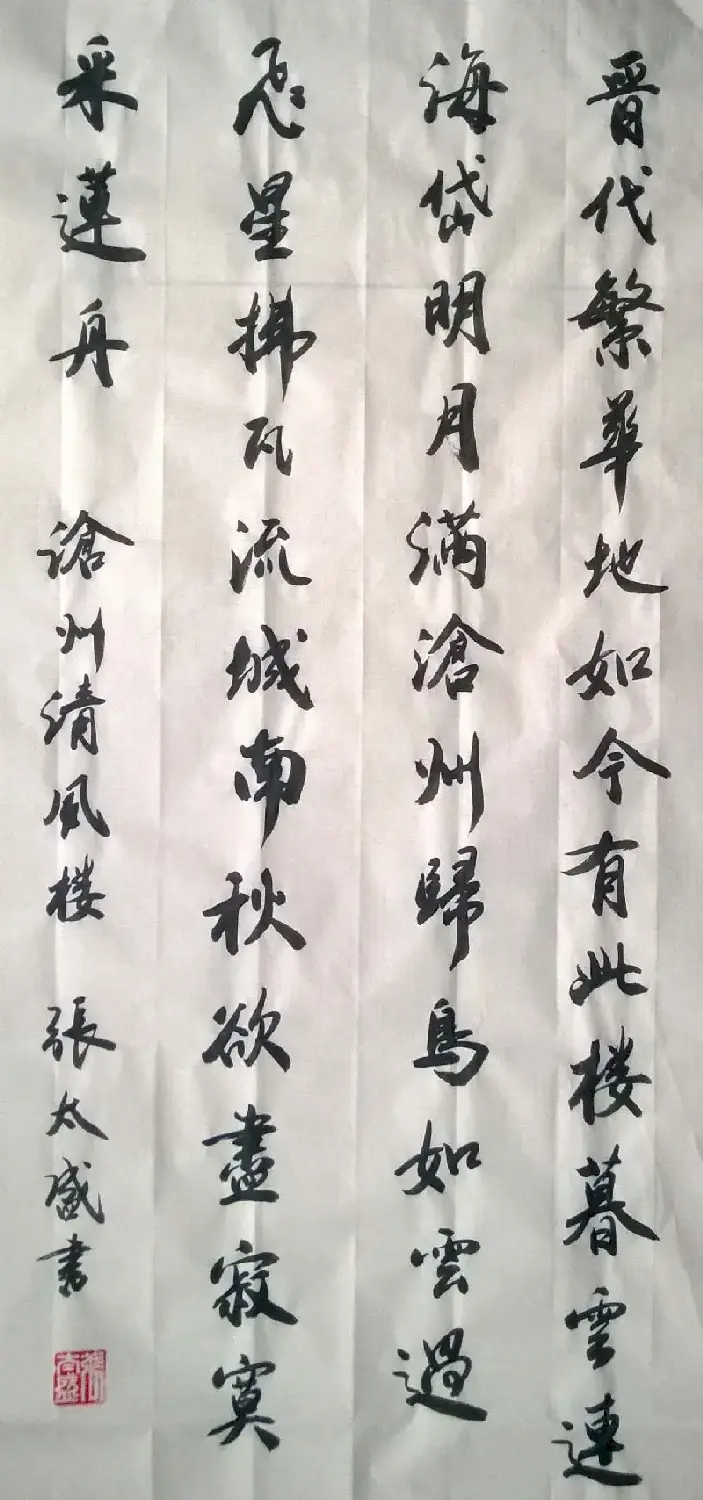 晋代繁華地如今有此楼暮雲連
海岱明月满滄州歸鳥如雲過
飛星拂瓦流城南秋欲盡寂寞
采蓮舟 滄州清風楼 張太盛書
張太盛